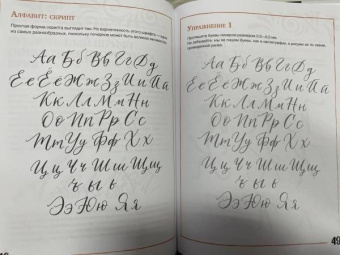 Алфавит: скрипт
Простая форма скрипта выглядит так. Но вариативность этого шрифта — одна
из самых разнообразных, поскольку почерков может быть великое множество.
Аа Бб Вв Гг Дд
Ее Ёё Жж Зз Ии Йй
Кк Лл Мм Нн
Оо Пп Рр Сс
Тт Уу Фф Хх
Цц Чч Шш Щщ
ъ ы ь
Ээ Юю Яя
Упражнение 1
Пропишите буквы
Аа Бб Вв Гг Дд
Ее Ёё Жж Зз Ии Йй
Кк Лл Мм Нн
Оо Пп Рр Сс
Тт Уу Фф Хх
Цц Чч Шш Щщ
ъ ы ь
Ээ Юю Яя
49